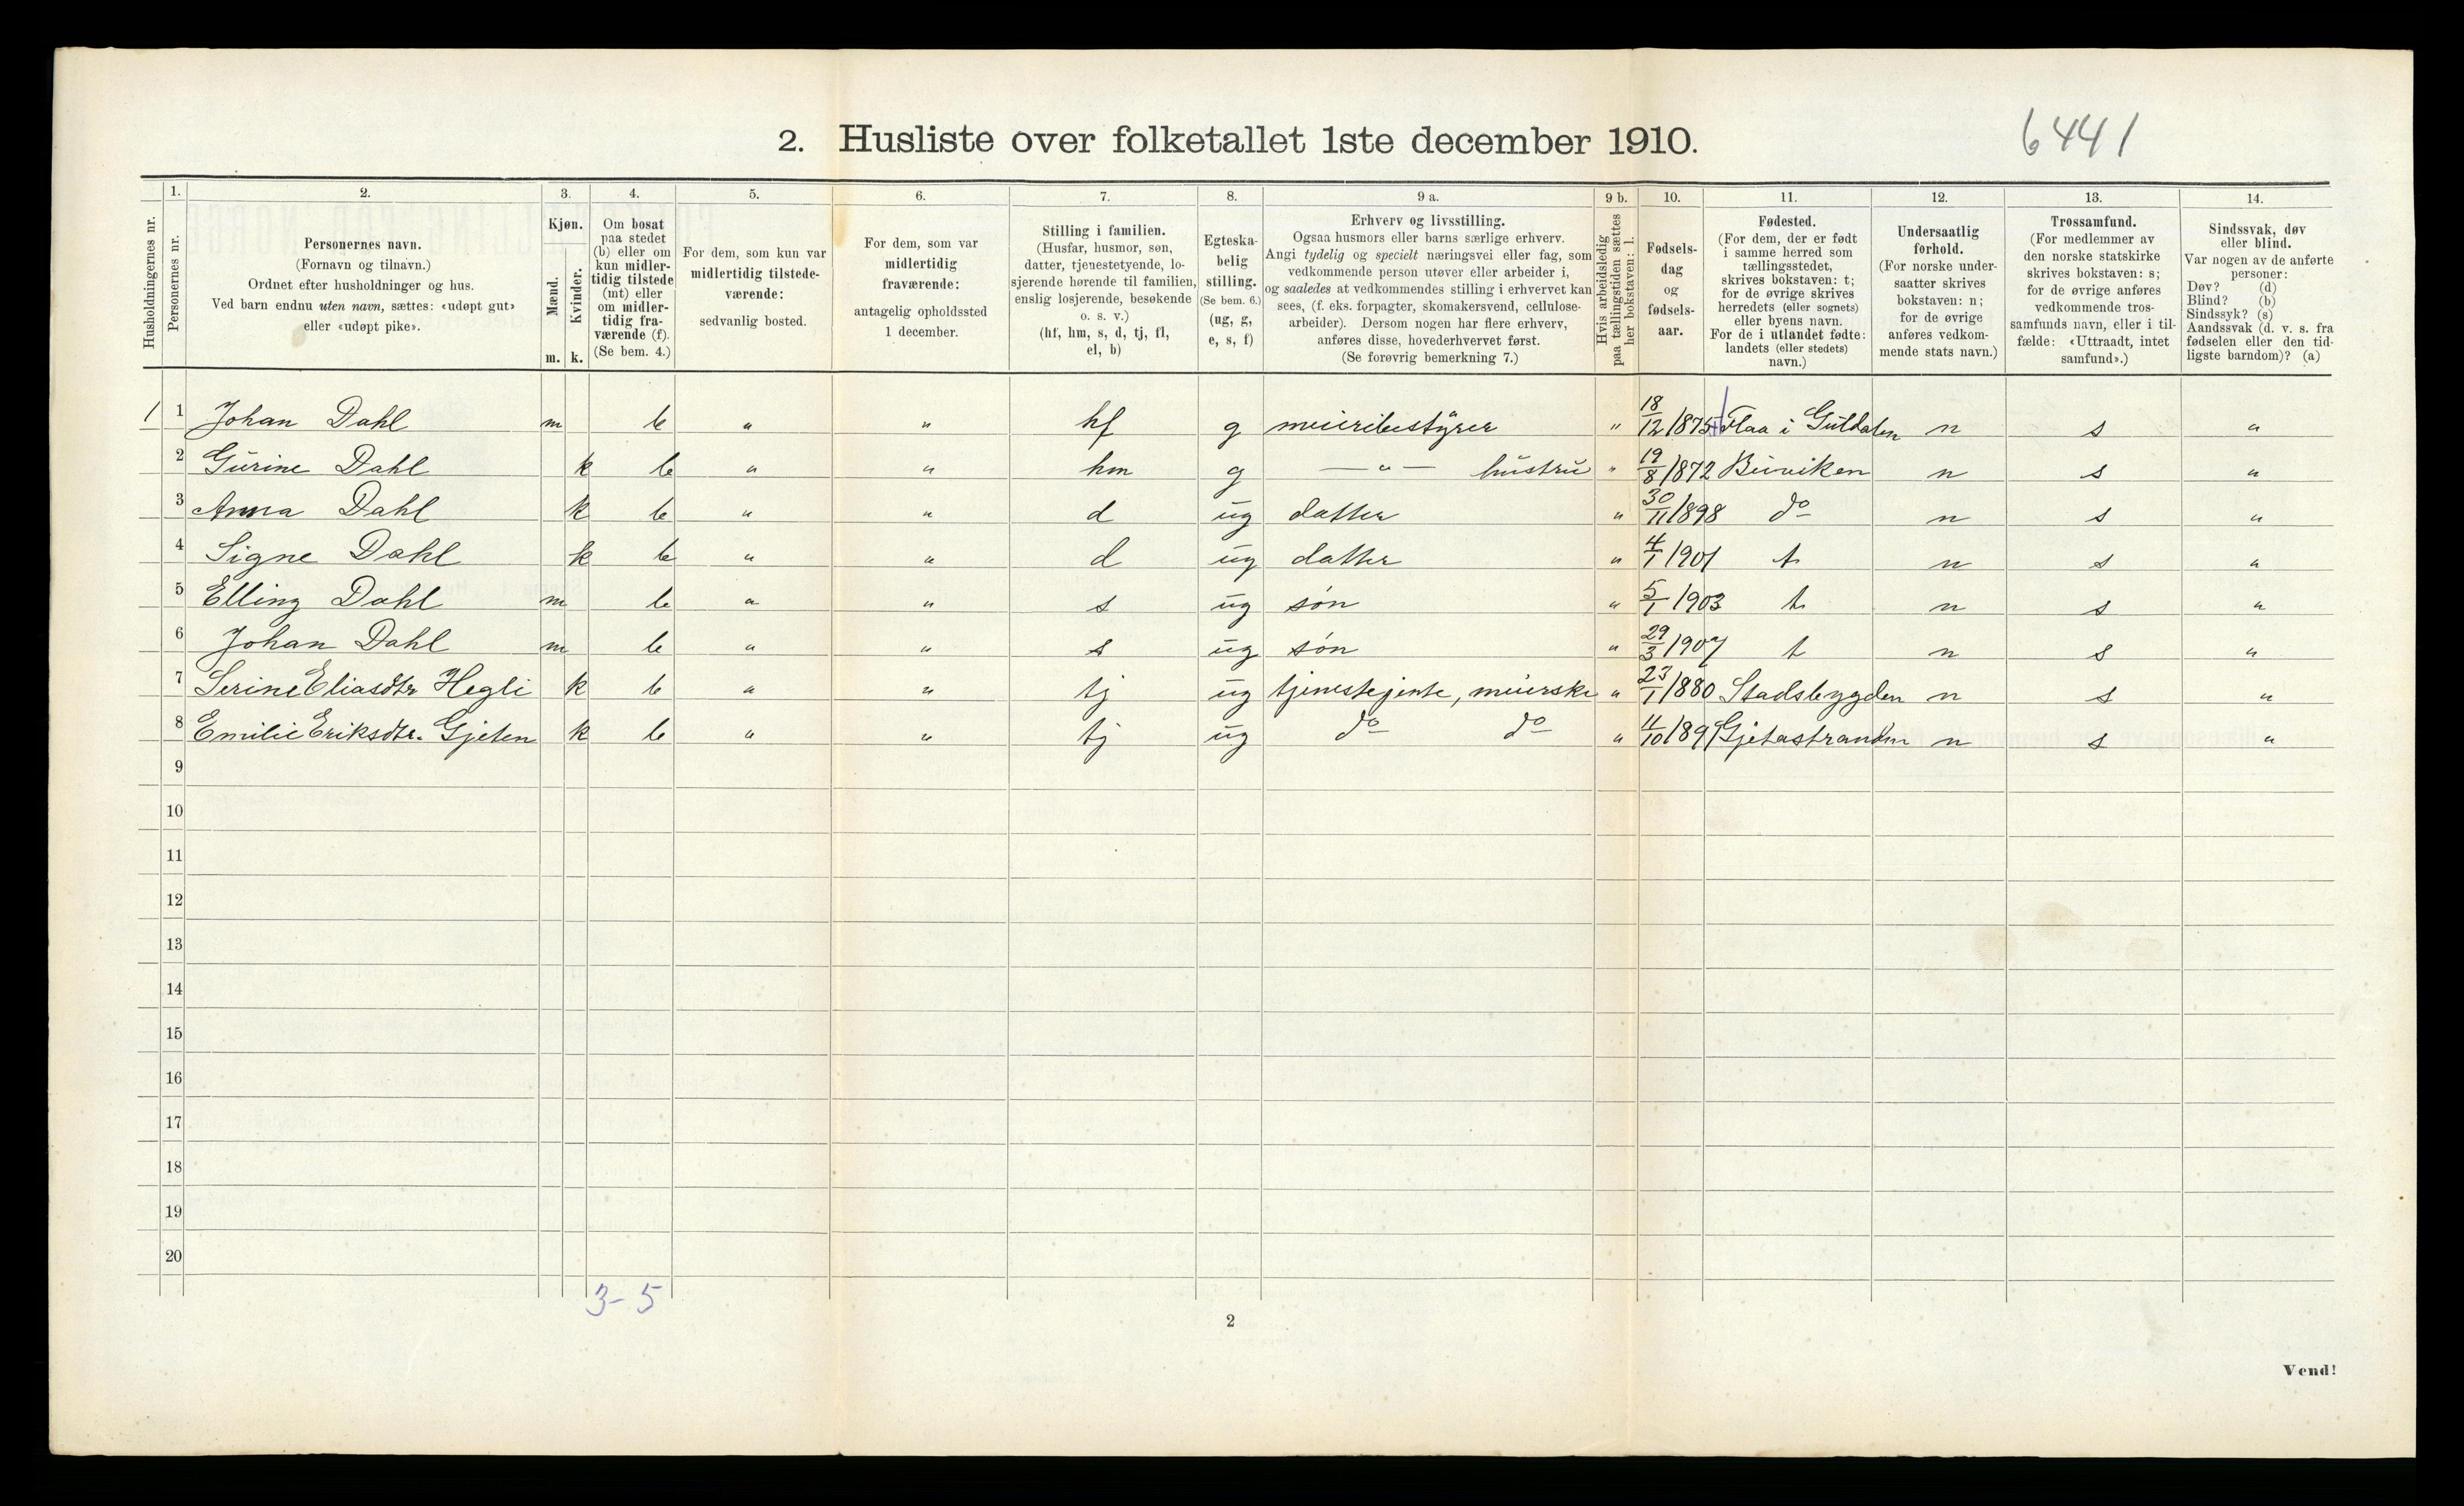 6441
2. Husliste over folketallet 1ste december 1910.
Husholdningernes nr.
1.
Personernes nr.
2.
Personernes navn.
(Fornavn og tilnavn.)
Ordnet efter husholdninger og hus.
Ved barn endnu uten navn, sættes: «udøpt gut»
eller «udøpt pike».
3.
Kjøn.
Mænd.
Kvinder.
m. k.
4.
Om bosat
paa stedet
(b) eller om
kun midler-
tidig tilstede
(mt) eller
om midler-
tidig fra-
værende (f).
(Se bem. 4.)
5.
For dem, som kun var
midlertidig tilstede-
værende:
sedvanlig bosted.
6.
For dem, som var
midlertidig
fraværende:
antagelig opholdssted
1 december.
7.
Stilling i familien.
(Husfar, husmor, søn,
datter, tjenestetyende, lo-
sjerende hørende til familien,
enslig losjerende, besøkende
o. s. v.)
(hf, hm, s, d, tj, fl,
el, b)
8.
Egteska-
belig
stilling.
(Se bem. 6.)
(ug, g,
e, s, f)
9 a.
Erhverv og livsstilling.
Ogsaa husmors eller barns særlige erhverv.
Angi tydelig og specielt næringsvei eller fag, som
vedkommende person utøver eller arbeider i,
og saaledes at vedkommendes stilling i erhvervet kan
sees, (f. eks. forpagter, skomakersvend, cellulose-
arbeider). Dersom nogen har flere erhverv,
anføres disse, hovederhvervet først.
(Se forøvrig bemerkning 7.)
9 b.
Hvis arbeidsledig
paa tællingstiden sættes
her bokstaven: l.
10.
Fødsels-
dag
og
fødsels-
aar.
11.
Fødested.
(For dem, der er født
i samme herred som
tællingsstedet,
skrives bokstaven: t;
for de øvrige skrives
herredets (eller sognets)
eller byens navn.
For de i utlandet fødte:
landets (eller stedets)
navn.)
12.
Undersaatlig
forhold.
(For norske under-
saatter skrives
bokstaven: n;
for de øvrige
anføres vedkom-
mende stats navn.)
13.
Trossamfund.
(For medlemmer av
den norske statskirke
skrives bokstaven: s;
for de øvrige anføres
vedkommende tros-
samfunds navn, eller i til-
fælde: «Uttraadt, intet
samfund».)
14.
Sindssvak, døv
eller blind.
Var nogen av de anførte
personer:
Døv? (d)
Blind? (b)
Sindssyk? (s)
Aandssvak (d. v. s. fra
fødselen eller den tid-
ligste barndom)? (a)
1 1 Johan Dahl m b " " hf g meieribestyrer " 18/12 1875 Flaa i Guldalen n s "
2 Gurine Dahl k b " " hm g —"— hustru " 19/8 1872 Buviken n s "
3 Anna Dahl k b " " d ug datter " 30/11 1898 do n s "
4 Signe Dahl k b " " d ug datter " 4/1 1901 t n s "
5 Elling Dahl m b " " s ug søn " 5/1 1903 t n s "
6 Johan Dahl m b " " s ug søn " 29/3 1907 t n s "
7 Serine Eliasdtr Hegli k b " " tj ug tjenestejente, meierske " 23/1 1880 Stadsbygden n s "
8 Emilie Eriksdtr. Gjeten k b " " tj ug do do " 4/10 1891 Gjetastranden n s "
9
10
11
12
13
14
15
16
17
18
19
20
3-5
2
Vend!